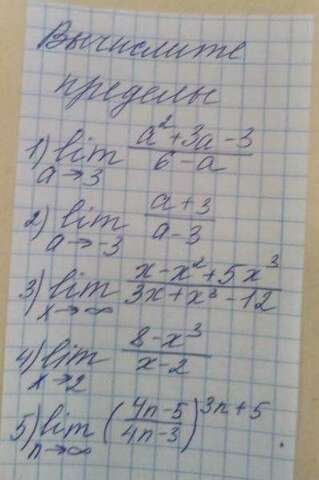 Вычислите
пределы
1) lim a→3 (a²+3a-3)/(6-a)
2) lim a→-3 (a+3)/(a-3)
3) lim x→∞ (x-x²+5x³)/(3x+x³-12)
4) lim x→2 (8-x³)/(x-2)
5) lim n→∞ ((4n-5)/(4n-3))³ⁿ⁺⁵.